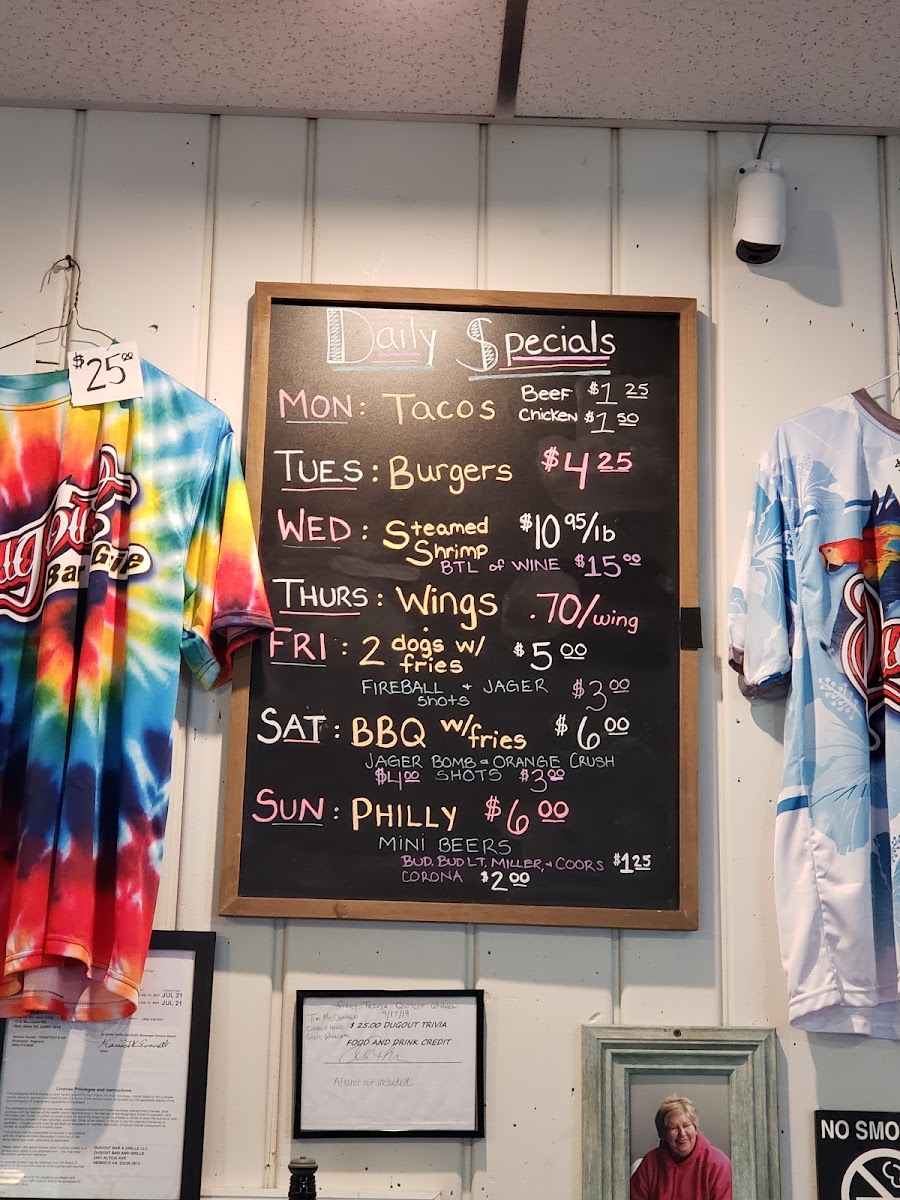 Daily Specials
MON: Tacos Beef $1 25
Chicken $1 50
TUES: Burgers $4 25
WED: Steamed Shrimp $10 95/lb
BTL of WINE $15 00
THURS: Wings .70/wing
FRI: 2 dogs w/ fries $5 00
FIREBALL + JAGER shots $3 00
SAT: BBQ w/fries $6 00
JAGER BOMB & ORANGE CRUSH
$4 00 SHOTS $3 00
SUN: PHILLY $6 00
MINI BEERS
BUD, BUD LT, MILLER, + COORS $1 25
CORONA $2 00
$25 00
Bar Grille
JUL 21
JUL 21
License Privileges and Instructions
DUGOUT BAR & GRILLE LLC
DUGOUT BAR AND GRILLE
HENRICO VA
9/17/19
$ 25.00 DUGOUT TRIVIA
FOOD AND DRINK CREDIT
Alcohol not included
NO SMO